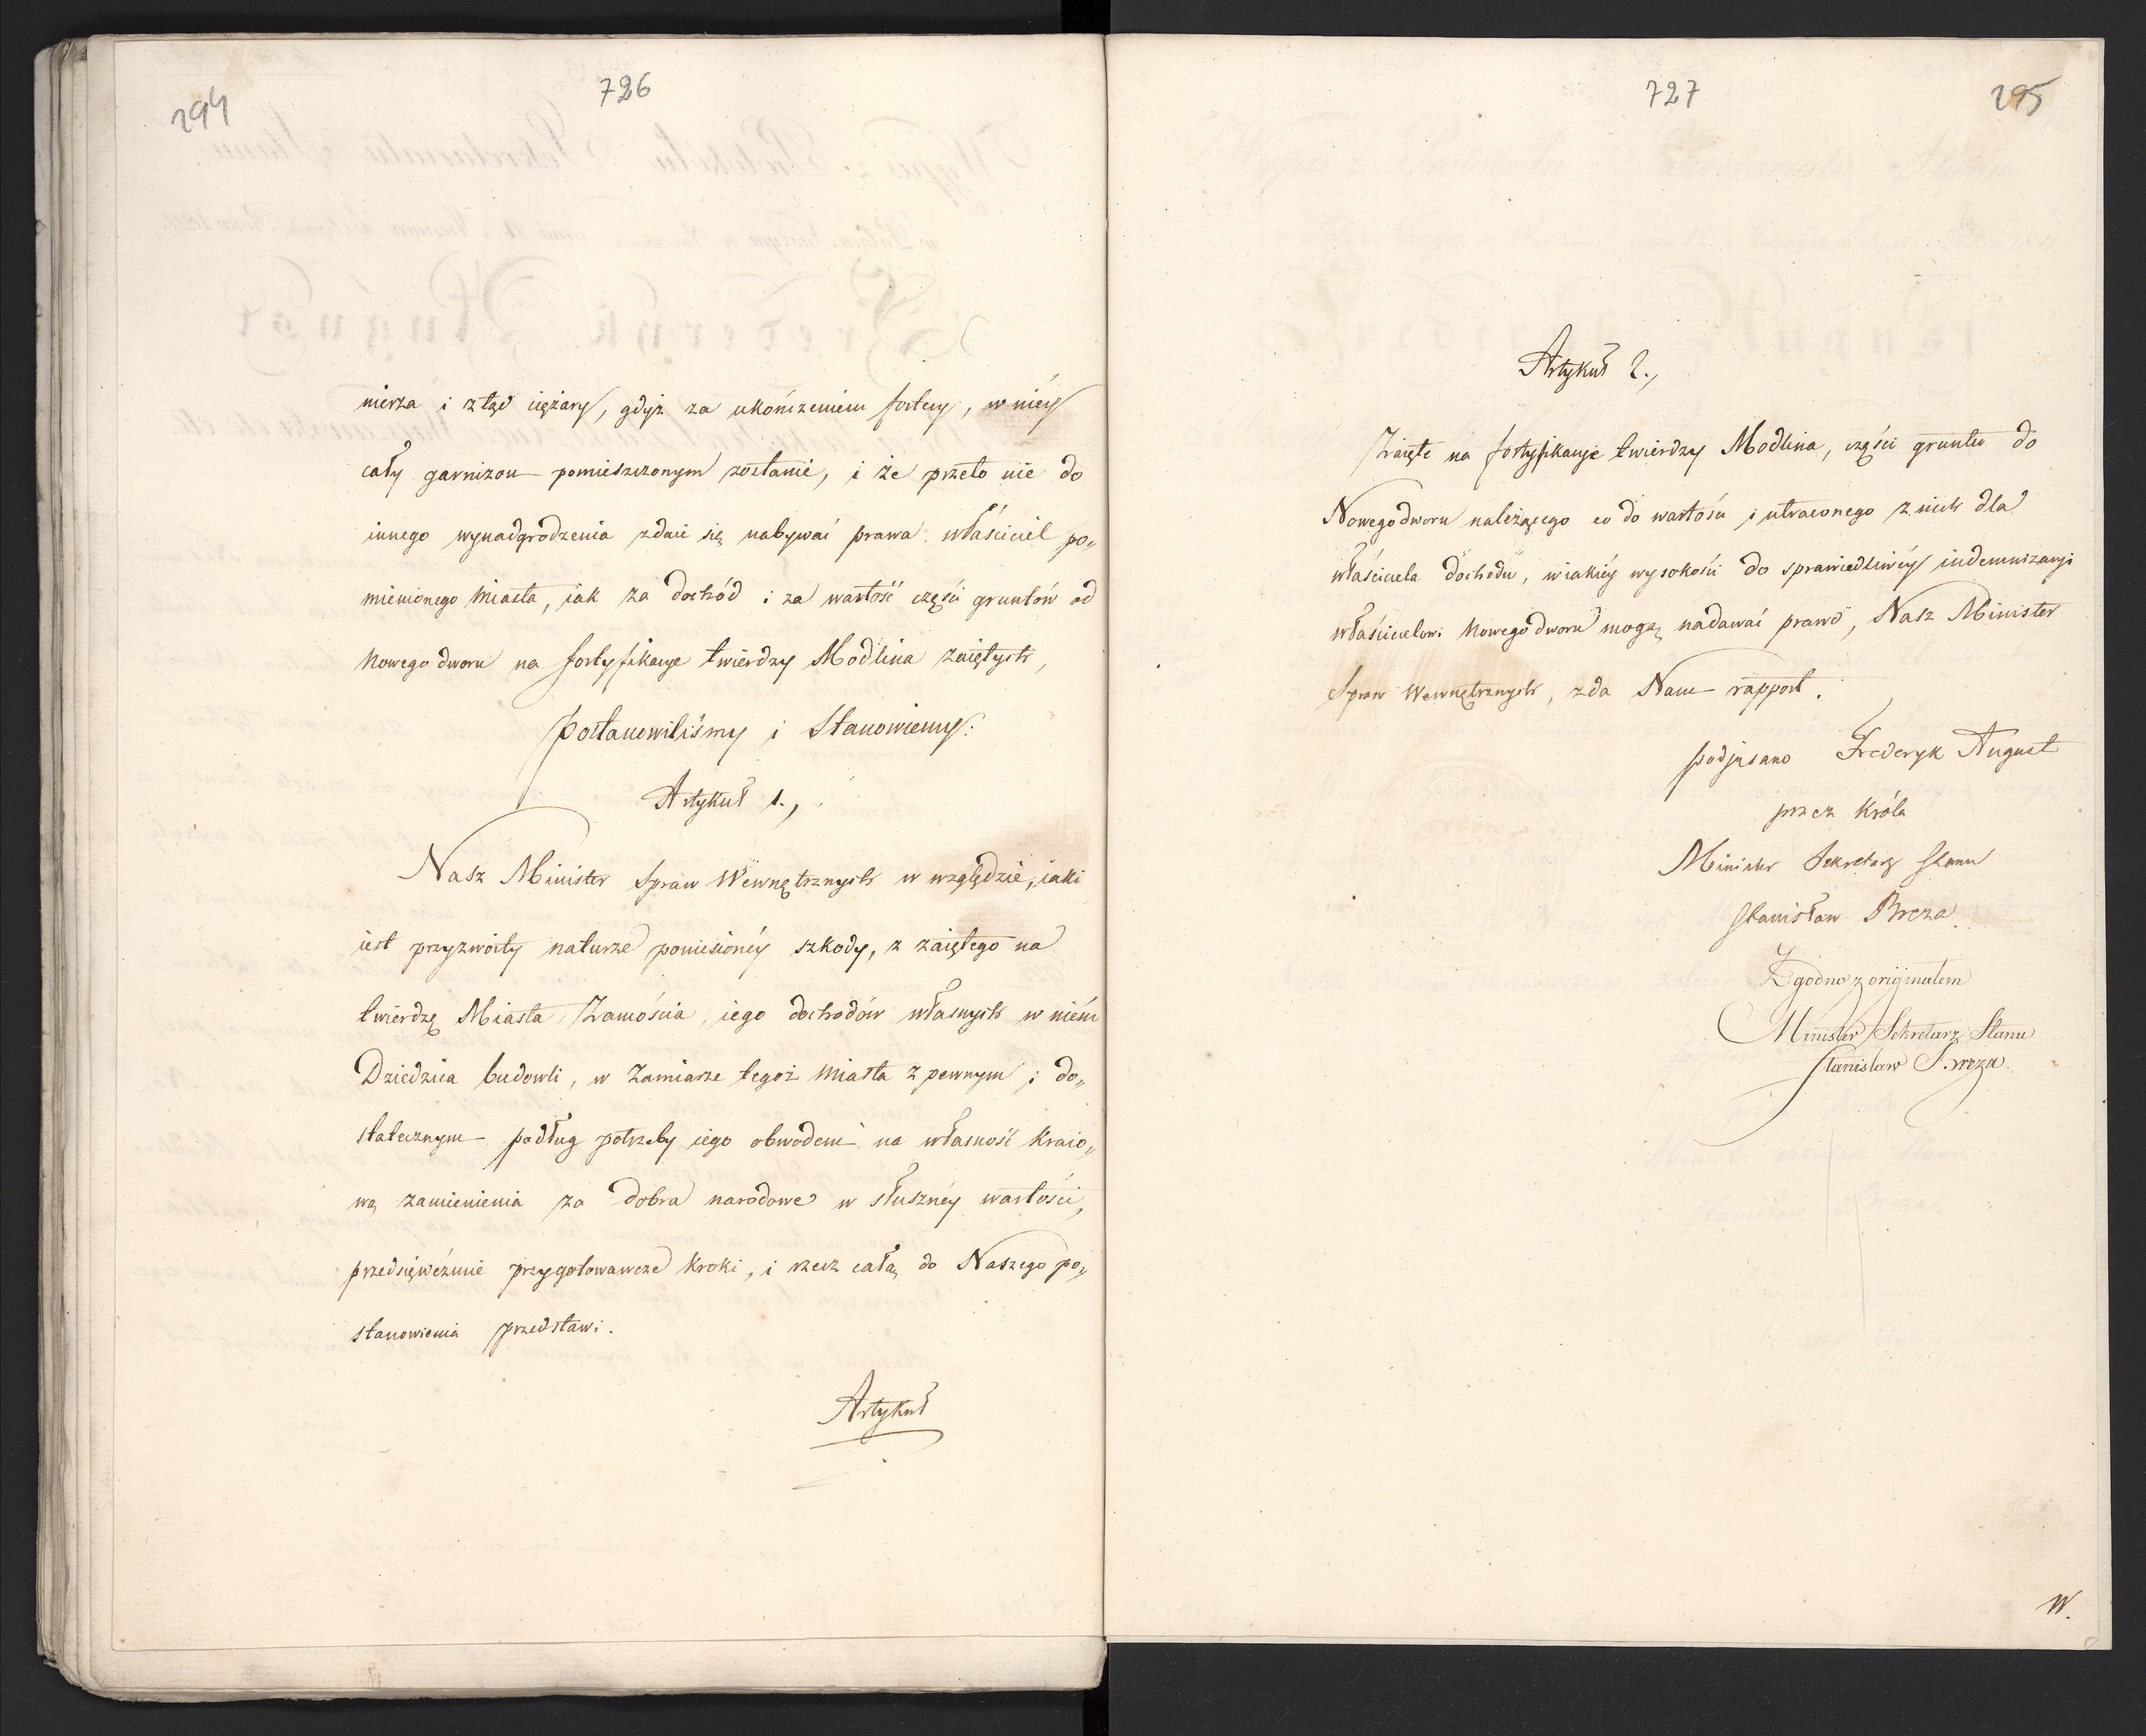 294
726
nierza i ztąd ciężary, gdyż za ukończeniem fortecy, w niéy
cały garnizon pomieszczonym zostanie, i że przeto nie do
innego wynadgrodzenia zdaie się nabywać prawa właściciel po„
mienionego Miasta, jak za dochód i za wartość części gruntów od
Nowego dworu na fortyfikacye twierdzy Modlina zaiętych,
postanowiliśmy i Stanowiemy:
Artykuł 1.,
Nasz Minister Spraw Wewnętrznych w względzie, iaki
iest przyzwoity naturze poniesionéy szkody, z zaiętego na
twierdzę Miasta Zamościa, iego dochodów własnych w niém
Dziedzica budowli, w zamiarze tegoż Miasta z pewnym i do„
statecznym podług potrzeby iego obwodem na własność Kraio„
wą zamienienia za dobra narodowe w słusznéy wartości,
przedsięweźmie przygotowawcze kroki, i rzecz całą do Naszego po„
stanowienia przedstawi.
Artykuł
727
295
Artykuł 2.,
Zaięte na fortyfikacye twierdzy Modlina, części gruntu do
Nowegodworu należącego co do wartości i utraconego z nich dla
właściciela dochodu, w iakiéy wysokości do sprawiedliwéy indemnizacyi
właścicielowi Nowegodworu mogą nadawać prawo, Nasz Minister
Spraw Wewnętrznych, zda Nam rapport.
podpisano Frederyk August
przez Króla
Minister Sekretarz Stanu
Stanisław Breza.
Zgodno z originałem
Minister Sekretarz Stanu
Stanisław Breza.
W.